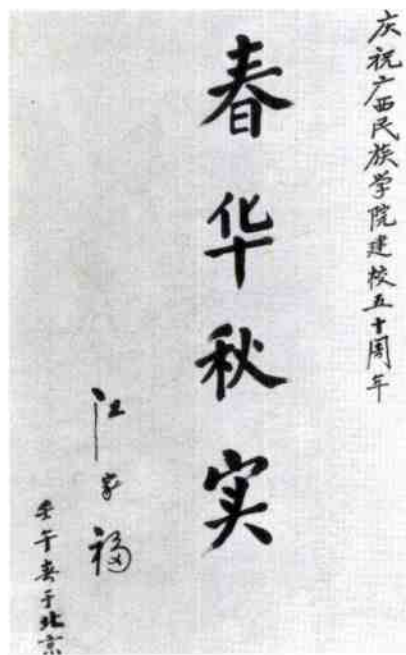 庆祝广西民族学院建校五十周年
春华秋实
江家福
壬午春于北京